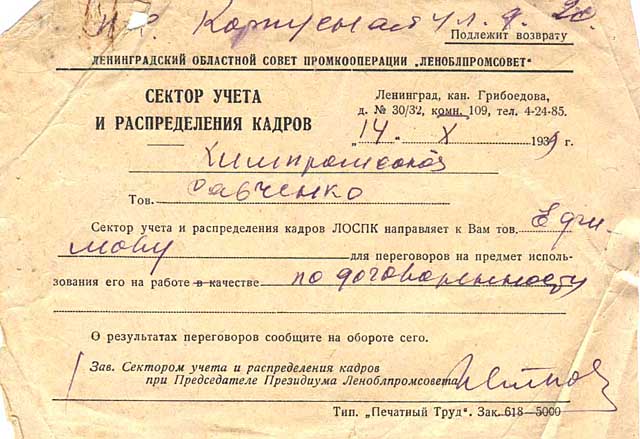 Корпусная ул. д. 20.
Подлежит возврату
ЛЕНИНГРАДСКИЙ ОБЛАСТНОЙ СОВЕТ ПРОМКООПЕРАЦИИ „ЛЕНОБЛПРОМСОВЕТ“
СЕКТОР УЧЕТА
И РАСПРЕДЕЛЕНИЯ КАДРОВ
Ленинград, кан. Грибоедова,
д. № 30/32, комн. 109, тел. 4-24-85.
„14. X 1939 г.
Химпромсоюз
Тов. Савченко
Сектор учета и распределения кадров ЛОСПК направляет к Вам тов. Ефи-
мову для переговоров на предмет исполь-
зования его на работе в качестве по договоренности
О результатах переговоров сообщите на обороте сего.
Зав. Сектором учета и распределения кадров
при Председателе Президиума Леноблпромсовета
Тип. „Печатный Труд“. Зак. 618—5000